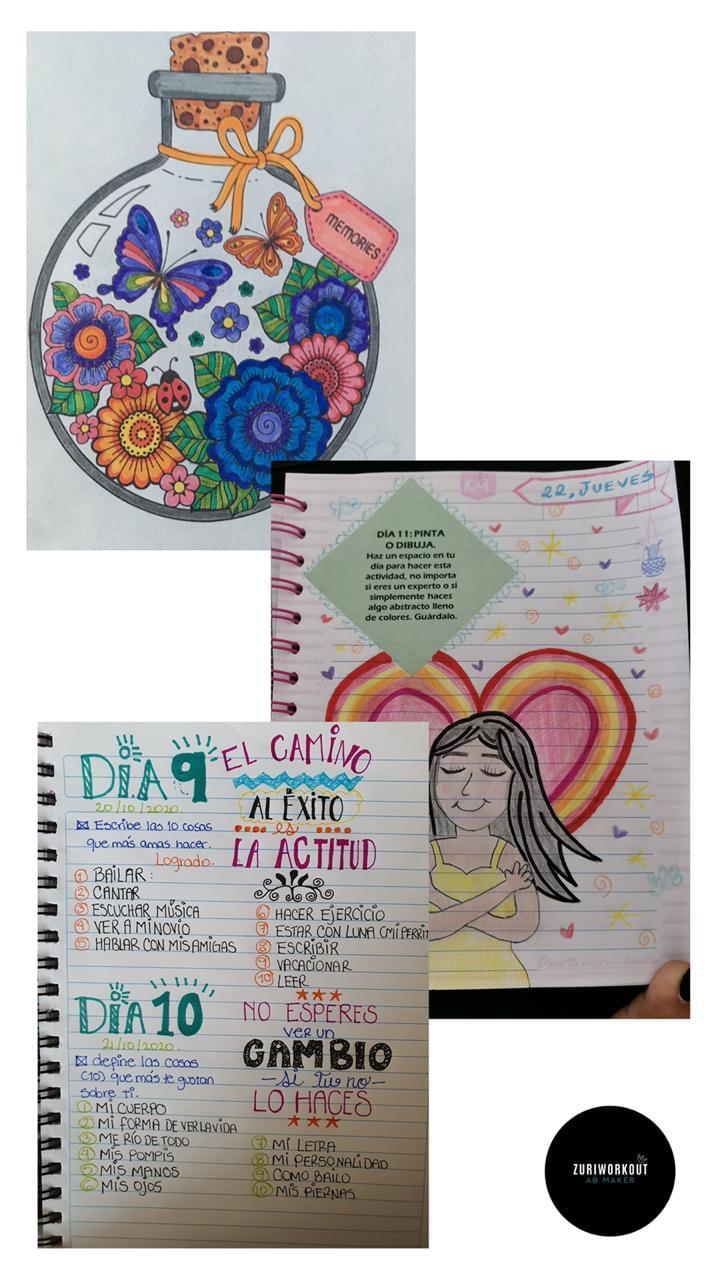 MEMORIES
22, JUEVES
DÍA 11: PINTA
O DIBUJA.
Haz un espacio en tu
día para hacer esta
actividad, no importa
si eres un experto o si
simplemente haces
algo abstracto lleno
de colores. Guárdalo.
DÍA 9
20/10/2020.
Escribe las 10 cosas
que más amas hacer.
Logrado.
① BAILAR:
② CANTAR
③ ESCUCHAR MÚSICA
④ VER A MI NOVIO
⑤ HABLAR CON MIS AMIGAS
EL CAMINO
AL ÉXITO
es
LA ACTITUD
⑥ HACER EJERCICIO
⑦ ESTAR CON LUNA (MI PERRIT
⑧ ESCRIBIR
⑨ VACACIONAR
⑩ LEER
DÍA 10
21/10/2020.
define las cosas
(10) que más te gustan
sobre ti.
① MI CUERPO
② MI FORMA DE VER LA VIDA
③ ME RÍO DE TODO
④ MIS POMPIS
⑤ MIS MANOS
⑥ MIS OJOS
NO ESPERES
VER UN
CAMBIO
- Si tu no -
LO HACES
⑦ MI LETRA
⑧ MI PERSONALIDAD
⑨ COMO BAILO
⑩ MIS PIERNAS
ZURIWORKOUT
AB MAKER